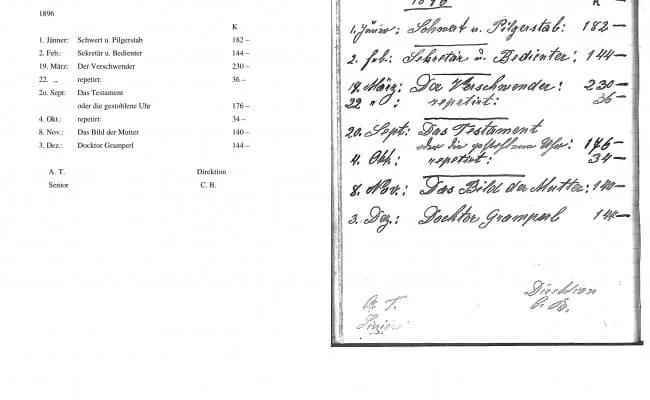 1896
K
1. Jänner: Schwert u. Pilgerstab 182 –
2. Feb.: Sekretär u. Bedienter 144 –
19. März: Der Verschwender 230 –
22. „ repetirt: 36 –
2o. Sept: Das Testament
oder die gestohlene Uhr 176 –
4. Okt.: repetirt: 34 –
8. Nov.: Das Bild der Mutter 140 –
3. Dez.: Docktor Gramperl 144 –
A. T. Direktion
Senior C. B.
1896
K
1. Jänner: Schwert u. Pilgerstab: 182 –
2. Feb: Sekretär u. Bedienter: 144 –
19. März: Der Verschwender: 230 –
22 " : repetirt: 36 –
20. Sept: Das Testament
oder die gestohlene Uhr: 176 –
4. Okt: repetirt: 34 –
8. Nov.: Das Bild der Mutter: 140 –
3. Dez.: Docktor Gramperl 144 –
A. T. Direktion
Senior C. B.